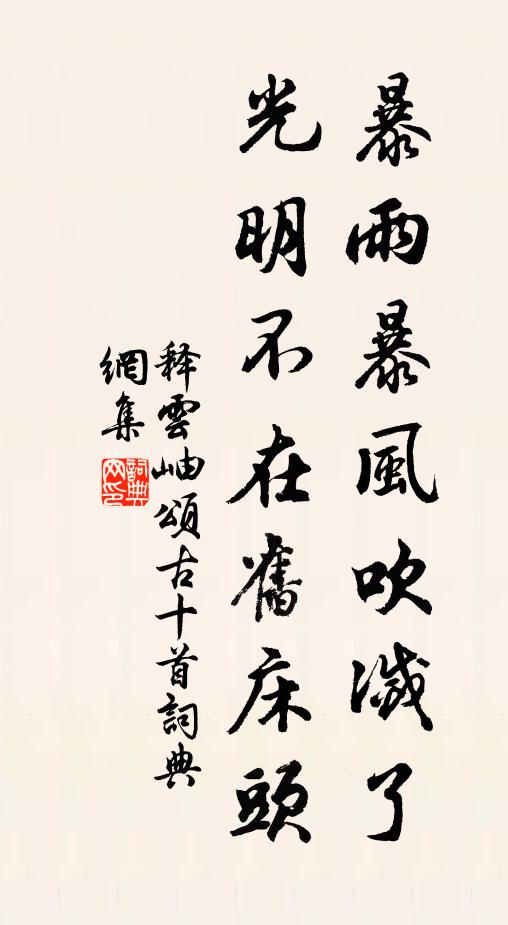 暴雨暴風吹滅了
光明不在舊床頭
释雲岫頌古十首詞典
網集
詞典
网印